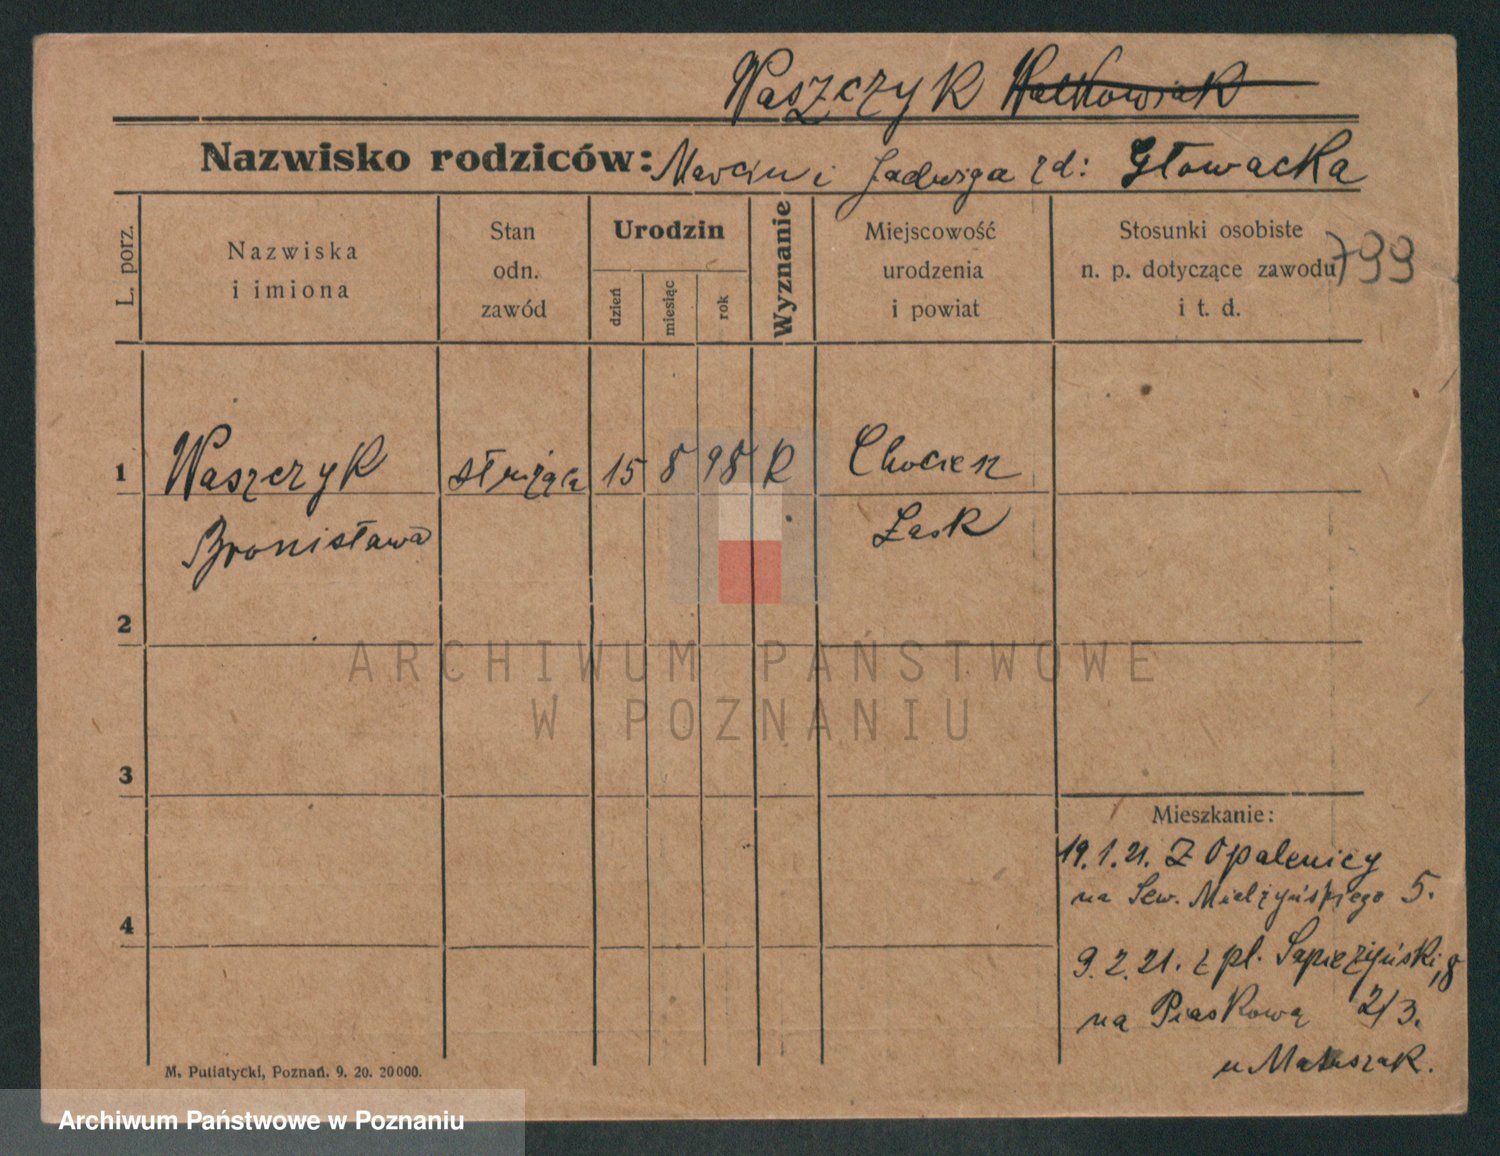 Waszczyk Walkowiak
Nazwisko rodziców: Marcin i Jadwiga zd: Głowacka
L. porz.
Nazwiska
i imiona
Stan
odn.
zawód
Urodzin
dzień
miesiąc
rok
Wyznanie
Miejscowość
urodzenia
i powiat
Stosunki osobiste
n. p. dotyczące zawodu
i t. d.
799
1 Waszczyk służąca 15 8 98 R
Bronisława Łask
2
3
4
ARCHIWUM PAŃSTWOWE
W POZNANIU
Mieszkanie:
19.1.21. Z Opalenicy
na Sew. Mielżyńskiego 5.
9.2.21. z pl. Sapieżyński, 8
na Piaskową 2/3.
u Matuszak.
M. Putiatycki, Poznań. 9. 20. 20000.
Archiwum Państwowe w Poznaniu